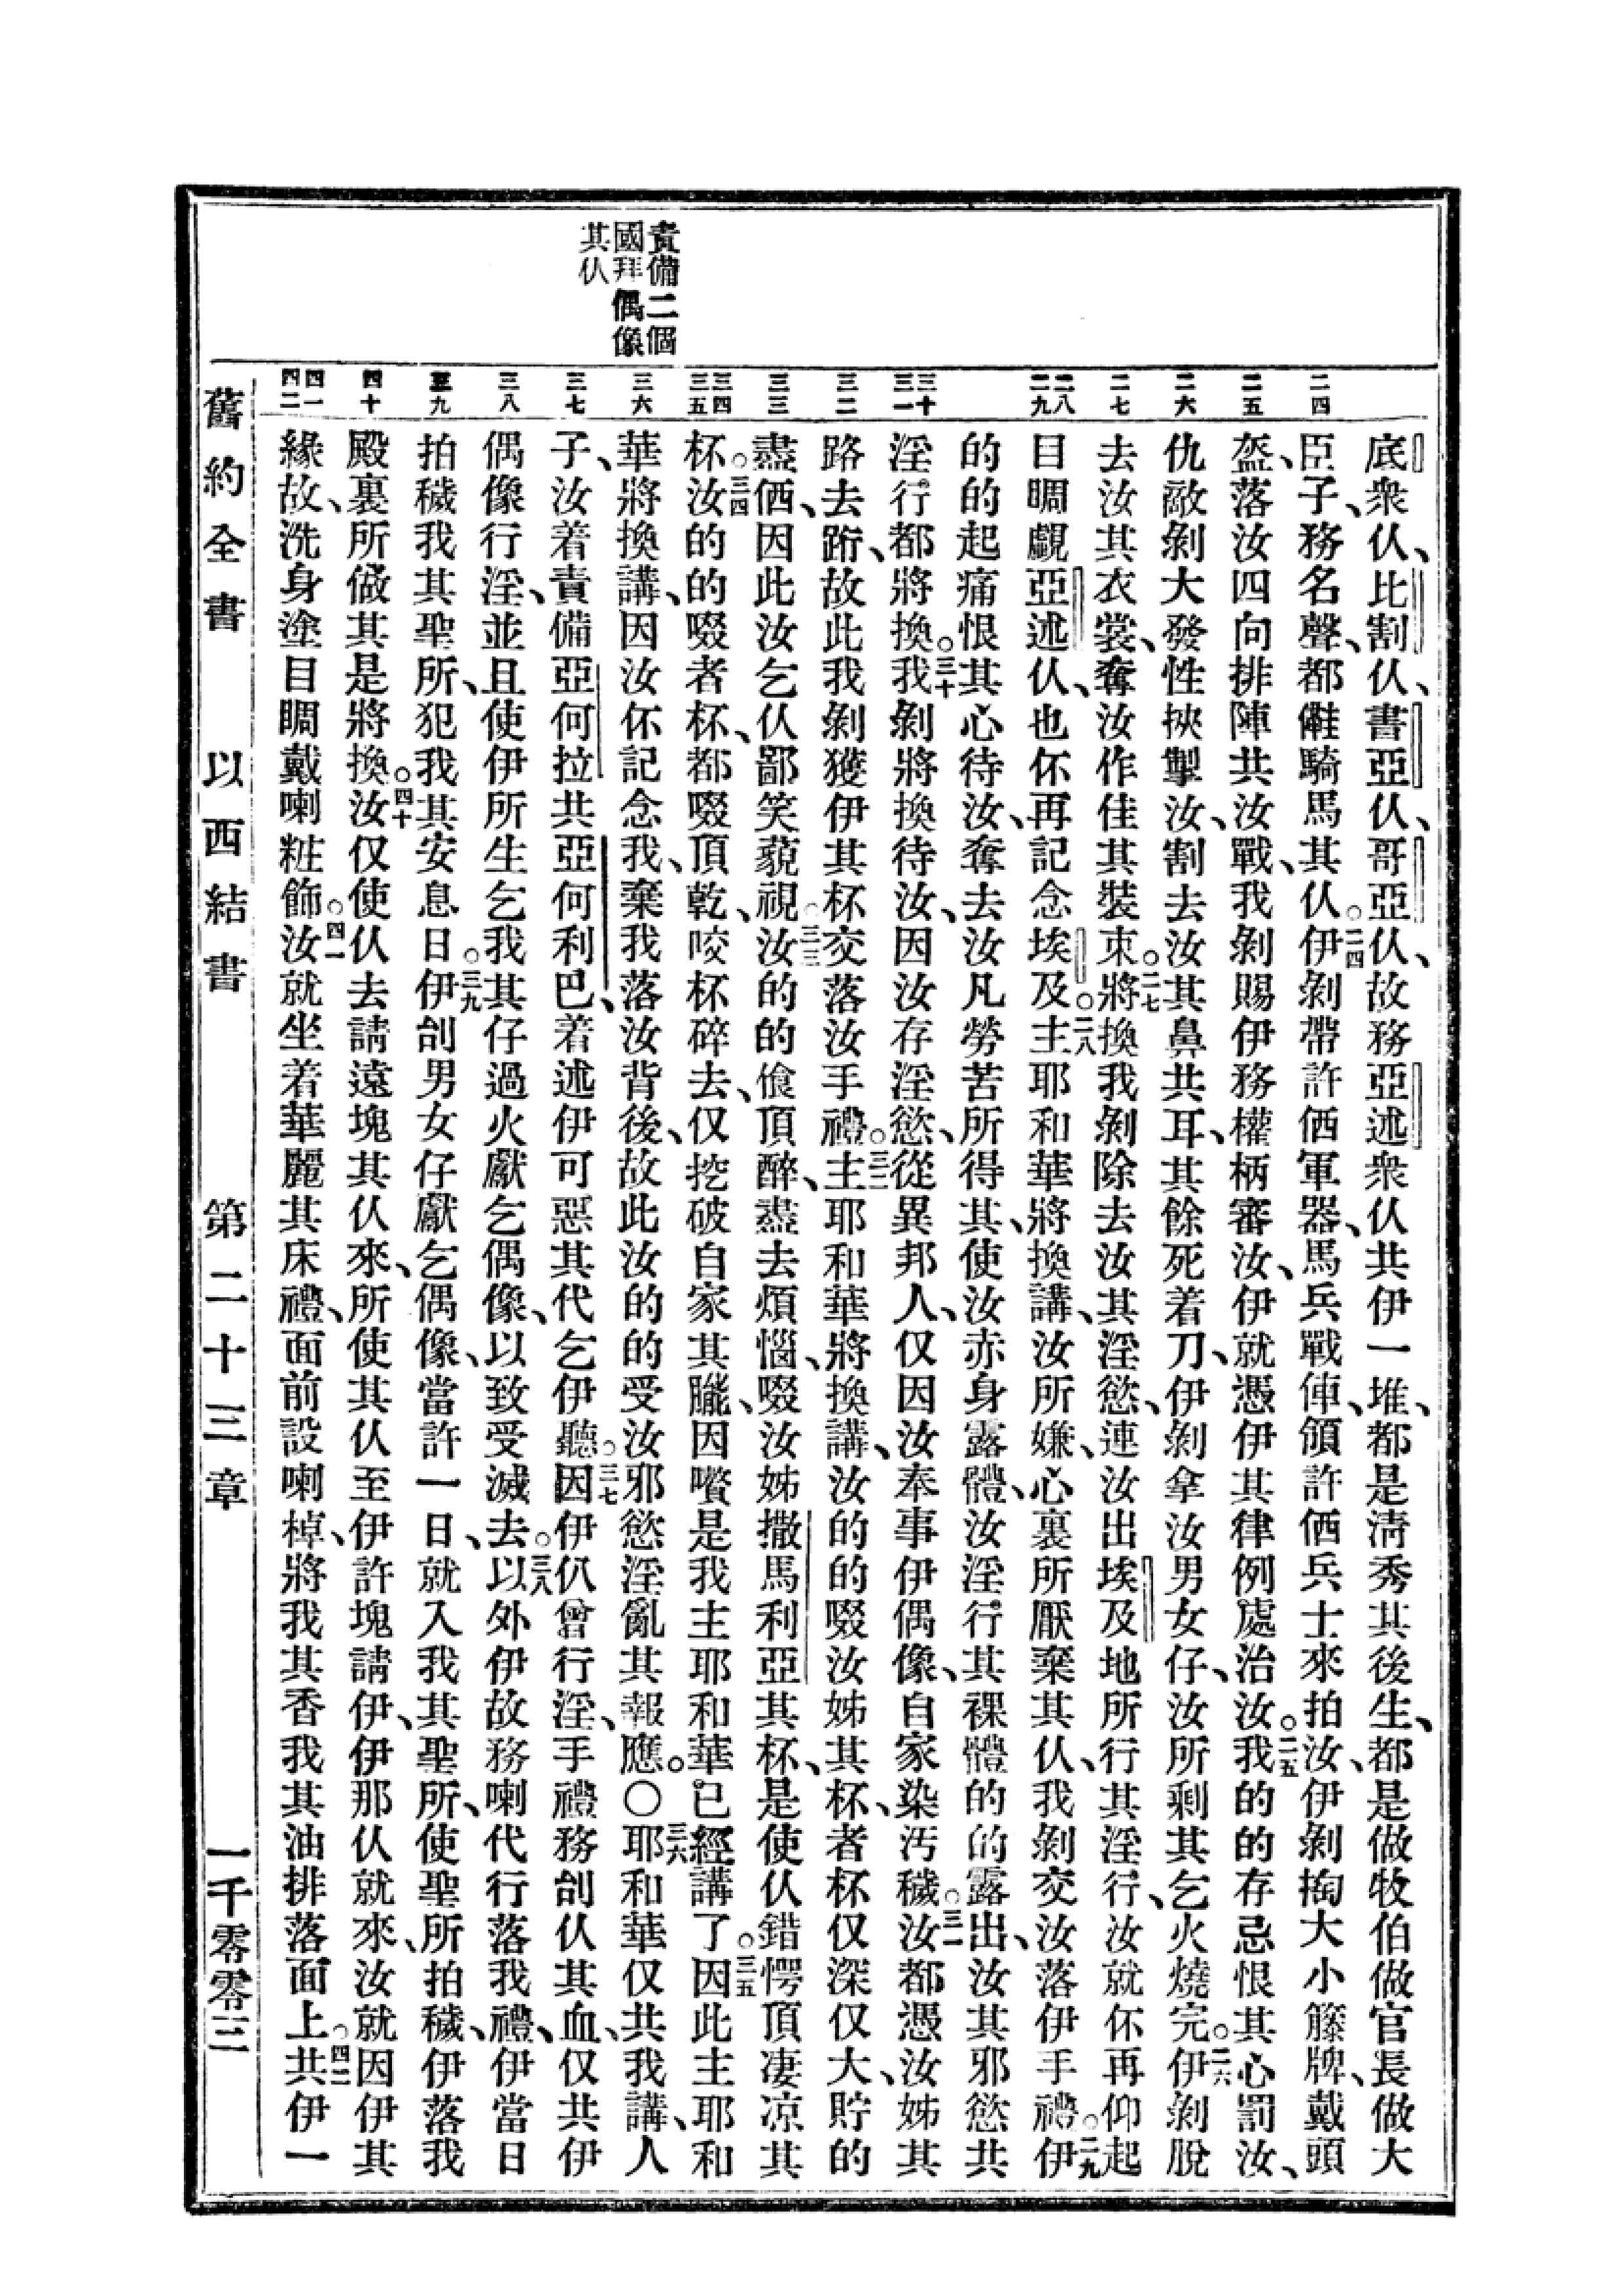 責備二個
國拜偶像
其仸
二四
二五
二六
二七
二八
二九
三十
三一
三二
三三
三四
三五
三六
三七
三八
三九
四十
四一
四二
底衆仸、比割仸、書亞仸、哥亞仸、故務亞述衆仸共伊一堆、都是清秀其後生、都是做牧伯做官長做大
臣子、務名聲、都騎馬其仸。二四伊剝帶許、軍器、馬兵戰俥、領許兵士來拍汝、伊剝掏大小籐牌、戴頭
盔、落汝四向排陣共汝戰、我剝賜伊務權柄審汝、伊就憑伊其律例處治汝。二五我的的存忌恨其心罰汝、
仇敵剝大發性挾掣汝、割去汝其鼻共耳、其餘死着刀、伊剝拿汝男女仔、汝所剩其乞火燒完。二六伊剝脫
去汝其衣裳、奪汝作佳其裝束。二七將換我剝除去汝其淫慾、連汝出埃及地所行其淫行、汝就伓再仰起
目睭覷亞述仸、也伓再記念埃及。二八主耶和華將換講、汝所嫌、心裏所厭棄其仸、我剝交汝落伊手禮。二九伊
的的起痛恨其心待汝、奪去汝凡勞苦所得其、使汝赤身露體、汝淫行其裸體的的露出、汝其邪慾共
淫行都將換。三十我剝將換待汝、因汝存淫慾、從異邦人、仅因汝奉事伊偶像、自家染汚穢。三一汝都憑汝姊其
路去跡、故此我剝獲伊其杯交落汝手禮。三二主耶和華將換講、汝的的啜汝姊其杯、者杯仅深仅大、貯的
盡、因此汝乞仸鄙笑藐視。三三汝的的飧頂醉、盡去煩惱、啜汝姊撒馬利亞其杯、是使仸錯愕頂凄凉其
杯。三四汝的的啜者杯、都啜頂乾、咬杯碎去、仅挖破自家其、因是我主耶和華已經講了。三五因此主耶和
華將換講、因汝伓記念我、棄我落汝背後、故此汝的的受汝邪慾淫亂其報應。〇三六耶和華仅共我講、人
子、汝着責備亞何拉共亞何利巴、着述伊可惡其代乞伊聽。三七因伊仈曾行淫、手禮務刣仸其血、仅共伊
偶像行淫、並且使伊所生乞我其仔過火獻乞偶像、以致受滅去。三八以外伊故務喇代行落我禮、伊當日
拍穢我其聖所、犯我其安息日。三九伊刣男女仔獻乞偶像、當許一日、就入我其聖所、使聖所拍穢、伊落我
殿裏所做其是將換。四十汝仅使仸去請遠塊其仸來、所使其仸至伊許塊請伊、伊那仸就來、汝就因伊其
緣故、洗身塗目睭戴喇粧飾。四一汝就坐着華麗其床禮、面前設喇棹、將我其香我其油排落面上。四二共伊一
舊約全書 以西結書 第二十三章 一千零零三